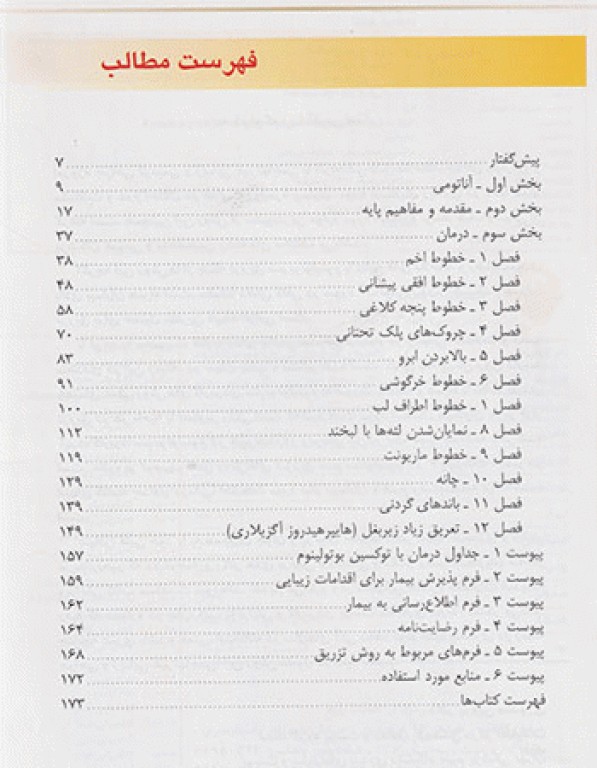 فهرست مطالب
پیش‌گفتار ........ ۷
بخش اول ـ آناتومی ........ ۹
بخش دوم ـ مقدمه و مفاهیم پایه ........ ۱۷
بخش سوم ـ درمان ........ ۳۷
فصل ۱ ـ خطوط اخم ........ ۳۸
فصل ۲ ـ خطوط افقی پیشانی ........ ۴۸
فصل ۳ ـ خطوط پنجه کلاغی ........ ۵۸
فصل ۴ ـ چروک‌های پلک تحتانی ........ ۷۰
فصل ۵ ـ بالابردن ابرو ........ ۸۳
فصل ۶ ـ خطوط خرگوشی ........ ۹۱
فصل ۱ ـ خطوط اطراف لب ........ ۱۰۰
فصل ۸ ـ نمایان‌شدن لثه‌ها با لبخند ........ ۱۱۲
فصل ۹ ـ خطوط ماریونت ........ ۱۱۹
فصل ۱۰ ـ چانه ........ ۱۲۹
فصل ۱۱ ـ باندهای گردنی ........ ۱۳۹
فصل ۱۲ ـ تعریق زیاد زیربغل (هایپرهیدروز آگزیلاری) ........ ۱۴۹
پیوست ۱ ـ جداول درمان با توکسین بوتولینوم ........ ۱۵۷
پیوست ۲ ـ فرم پذیرش بیمار برای اقدامات زیبایی ........ ۱۵۹
پیوست ۳ ـ فرم اطلاع‌رسانی به بیمار ........ ۱۶۲
پیوست ۴ ـ فرم رضایت‌نامه ........ ۱۶۴
پیوست ۵ ـ فرم‌های مربوط به روش تزریق ........ ۱۶۸
پیوست ۶ ـ منابع مورد استفاده ........ ۱۷۲
فهرست کتاب‌ها ........ ۱۷۳